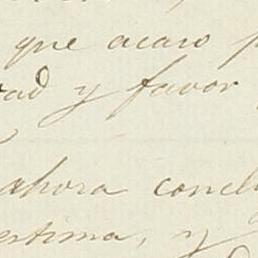 que acaso p
rad y favor
ahora conclu
estima, y